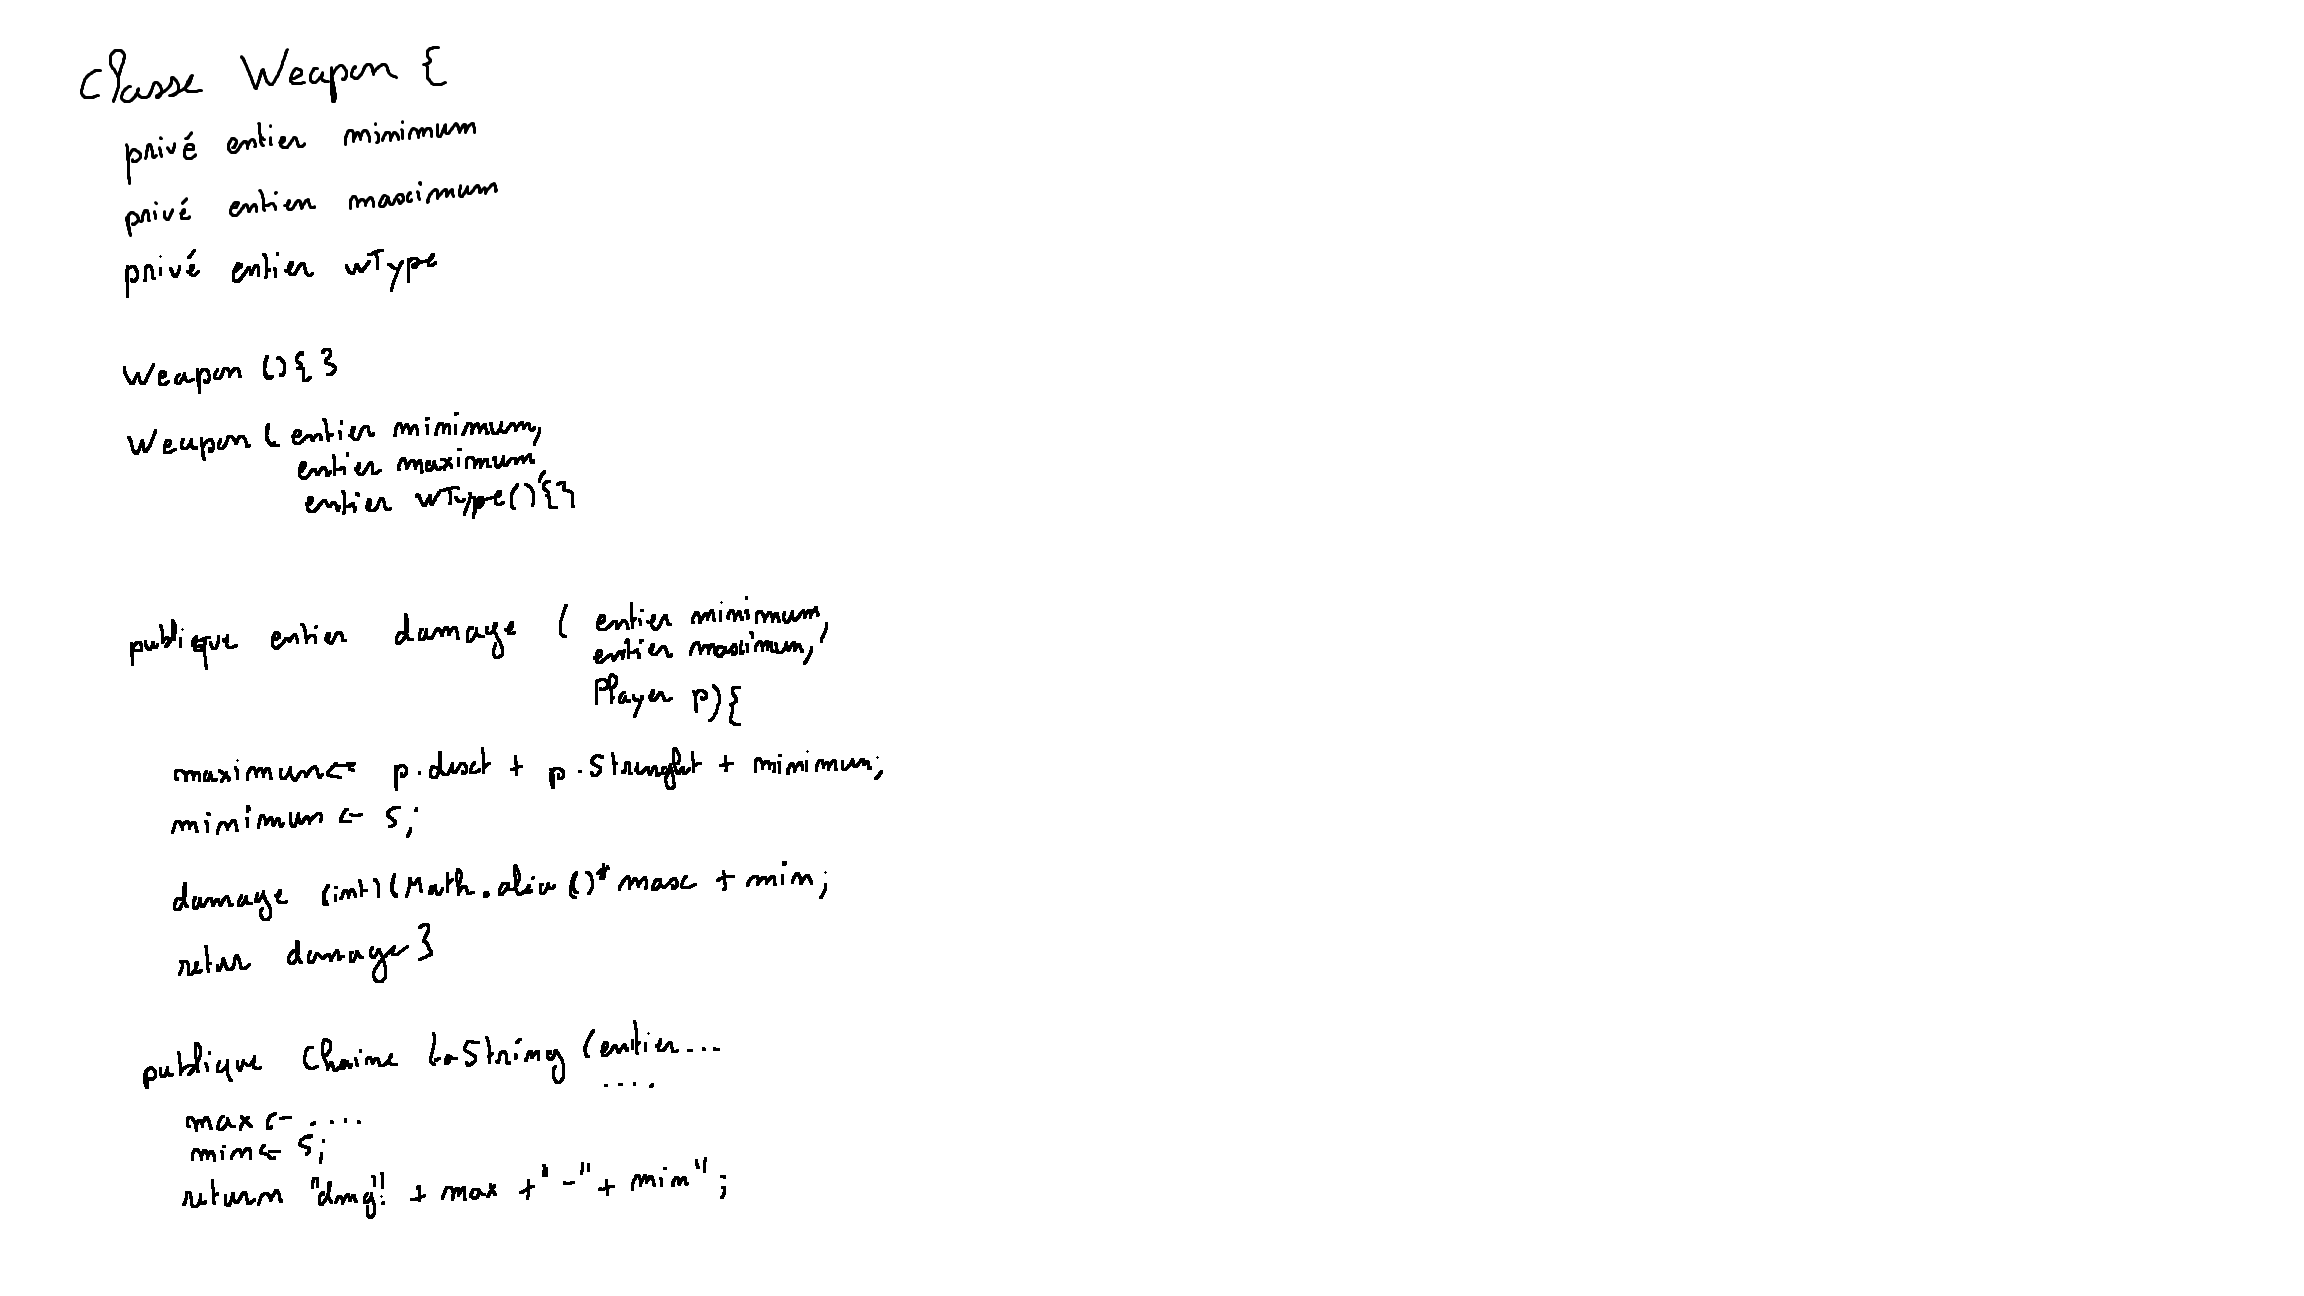 Classe Weapon {
privé entier minimum
privé entier maximum
privé entier wType
Weapon (){ }
Weapon ( entier minimum,
entier maximum,
entier wType(){}
publique entier damage ( entier minimum,
entier maximum,
Player p){
maximum ← p.dext + p.Strenght + minimum;
minimum ← 5;
damage (int)(Math.aléa()* max + min;
retur damage }
publique Chaine toString (entier...
....
max ← ....
min ← 5;
return "dmg": + max +" -"+ min";